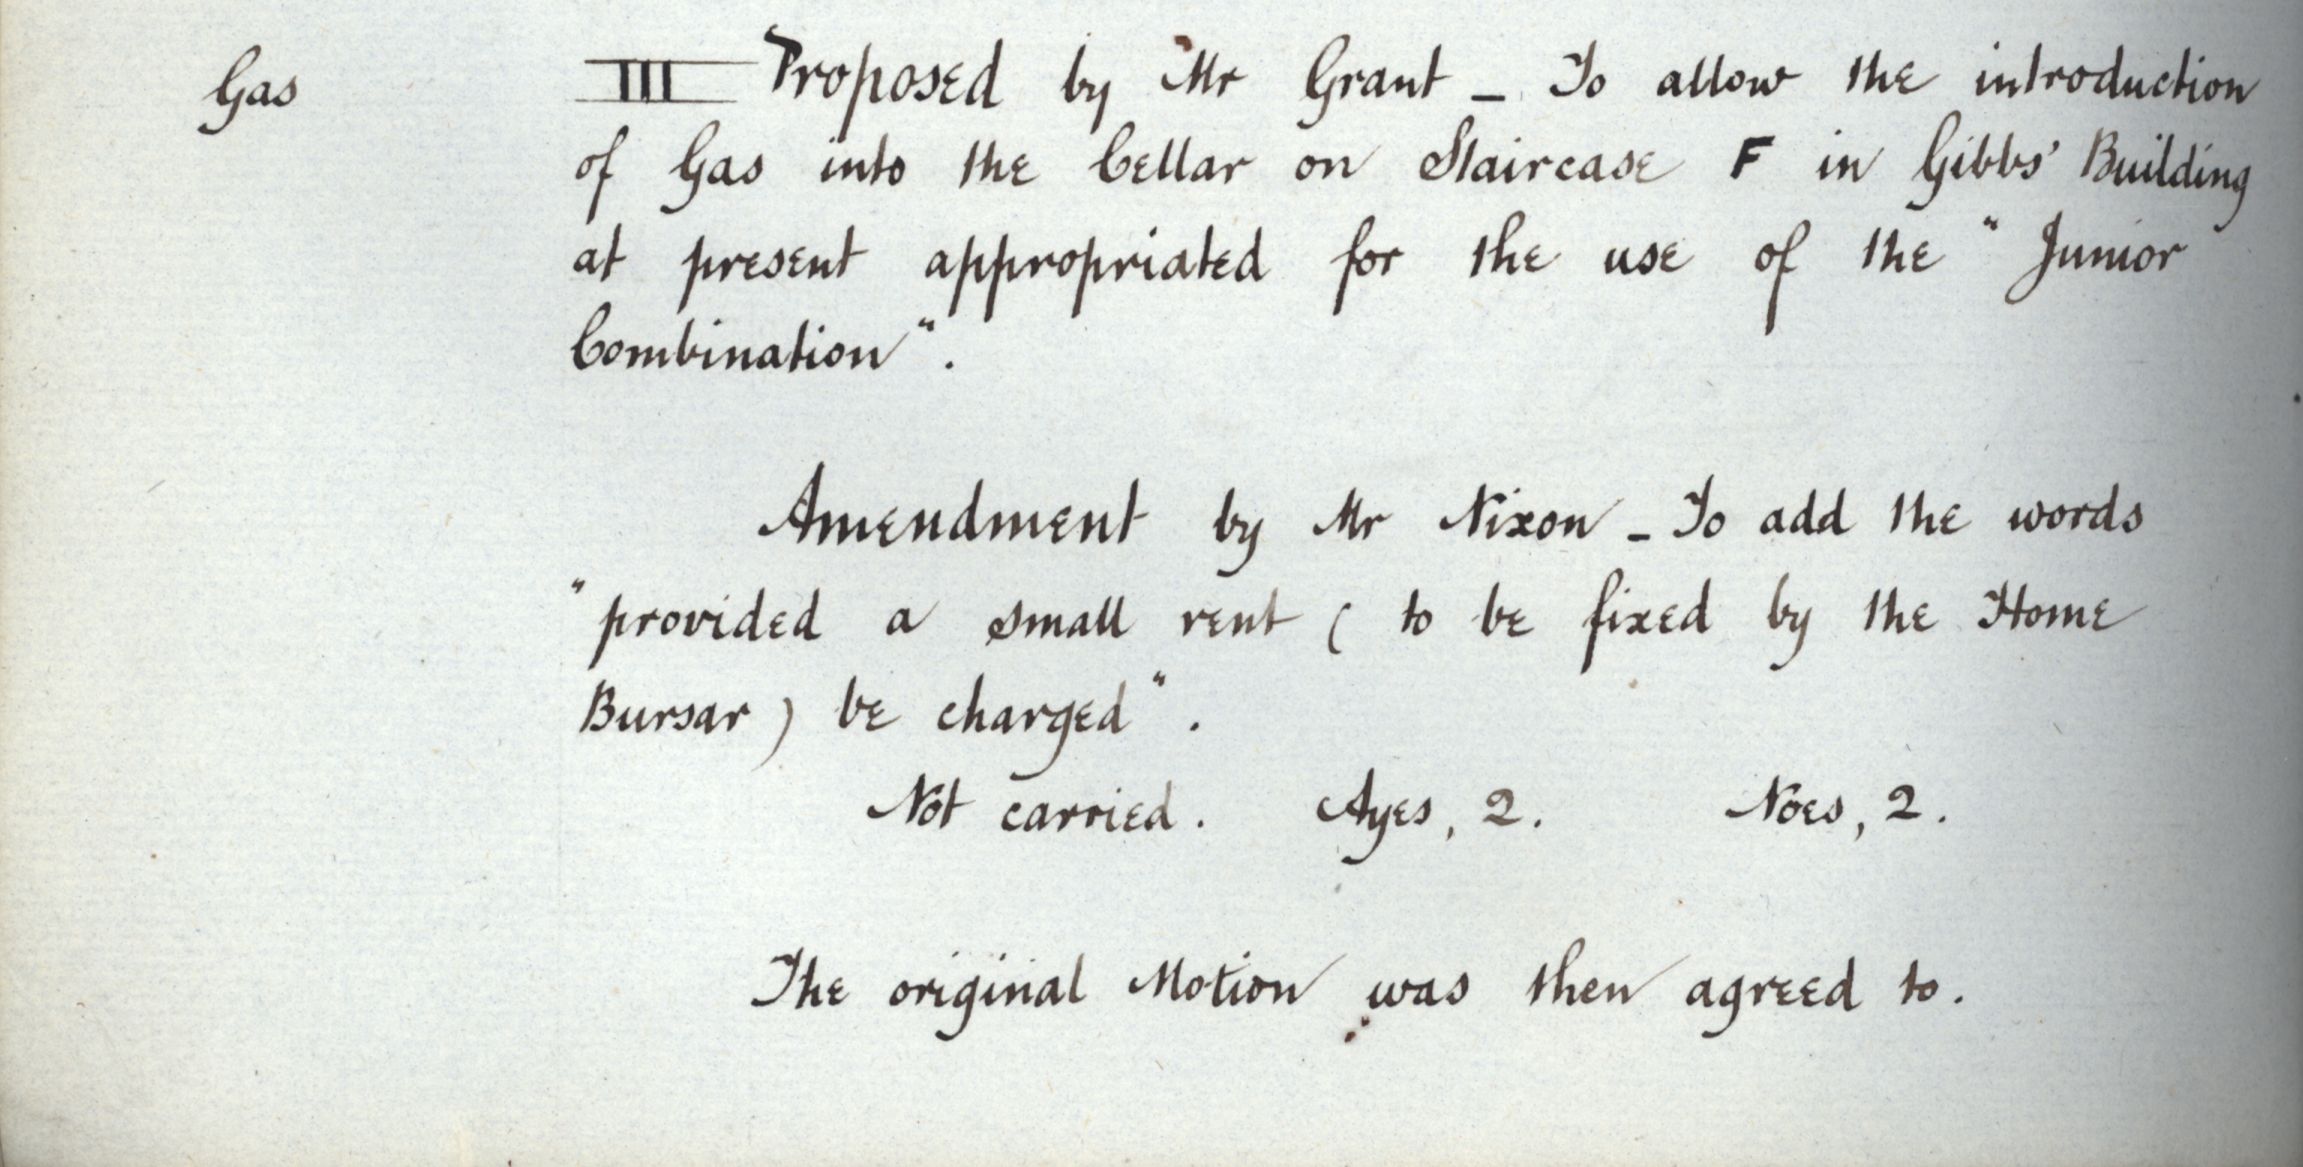 Gas
III Proposed by Mr Grant _ To allow the introduction
of Gas into the Cellar on Staircase F in Gibbs' Building
at present appropriated for the use of the "Junior
Combination".
Amendment by Mr Nixon _ To add the words
"provided a small rent ( to be fixed by the Home
Bursar ) be charged".
Not carried. Ayes, 2. Noes, 2.
The original Motion was then agreed to.